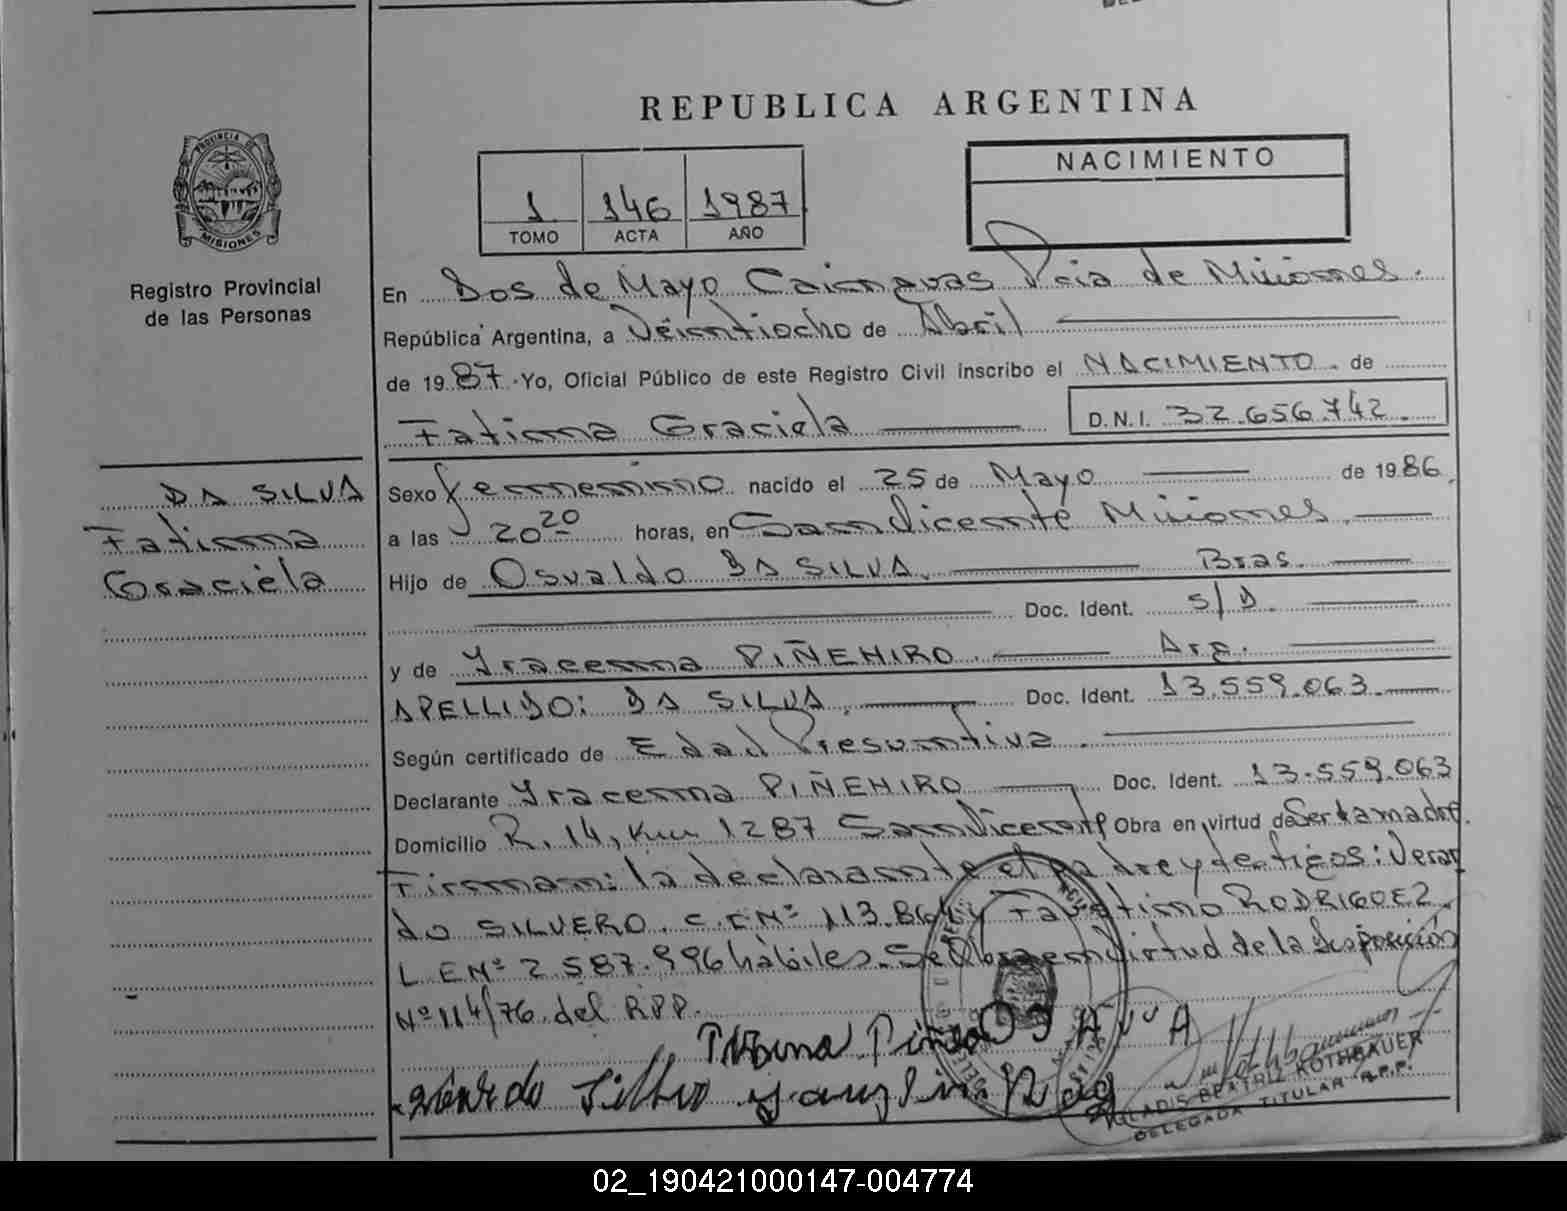 REPUBLICA ARGENTINA
PROVINCIA DE
MISIONES
Registro Provincial
de las Personas
1 146 1987
TOMO ACTA AÑO
NACIMIENTO
En Dos de Mayo Cainguas Pcia de Misiones.
República Argentina, a Veintiocho de Abril
de 1987. Yo, Oficial Público de este Registro Civil inscribo el NACIMIENTO. de
Fatima Graciela
D.N.I. 32.656.742.
DA SILVA
Fatima
Graciela
Sexo femenino nacido el 25 de Mayo de 1986
a las 20 20 horas, en San Vicente Misiones.
Hijo de Osvaldo DA SILVA. Bras.
Doc. Ident. S/D.
y de Yracema PIÑEHIRO. Arg.
APELLIDO: DA SILVA. Doc. Ident. 13.559.063.
Según certificado de Edad Presuntiva.
Declarante Yracema PIÑEHIRO Doc. Ident. 13.559.063
Domicilio R. 14, Km 1287 San Vicente Obra en virtud de Ser la madre.
Firman: la declarante el padre y testigos: Verar
do SILVERO. C.I Nº 113.864 y Faustino RODRIGUEZ.
L.E Nº 2.587.996 hábiles. Se Obra en Virtud de la Disposición
Nº 114/76. del RPP.
GLADIS BEATRIZ ROTHBAUER
DELEGADA TITULAR R.P.P.
02_190421000147-004774